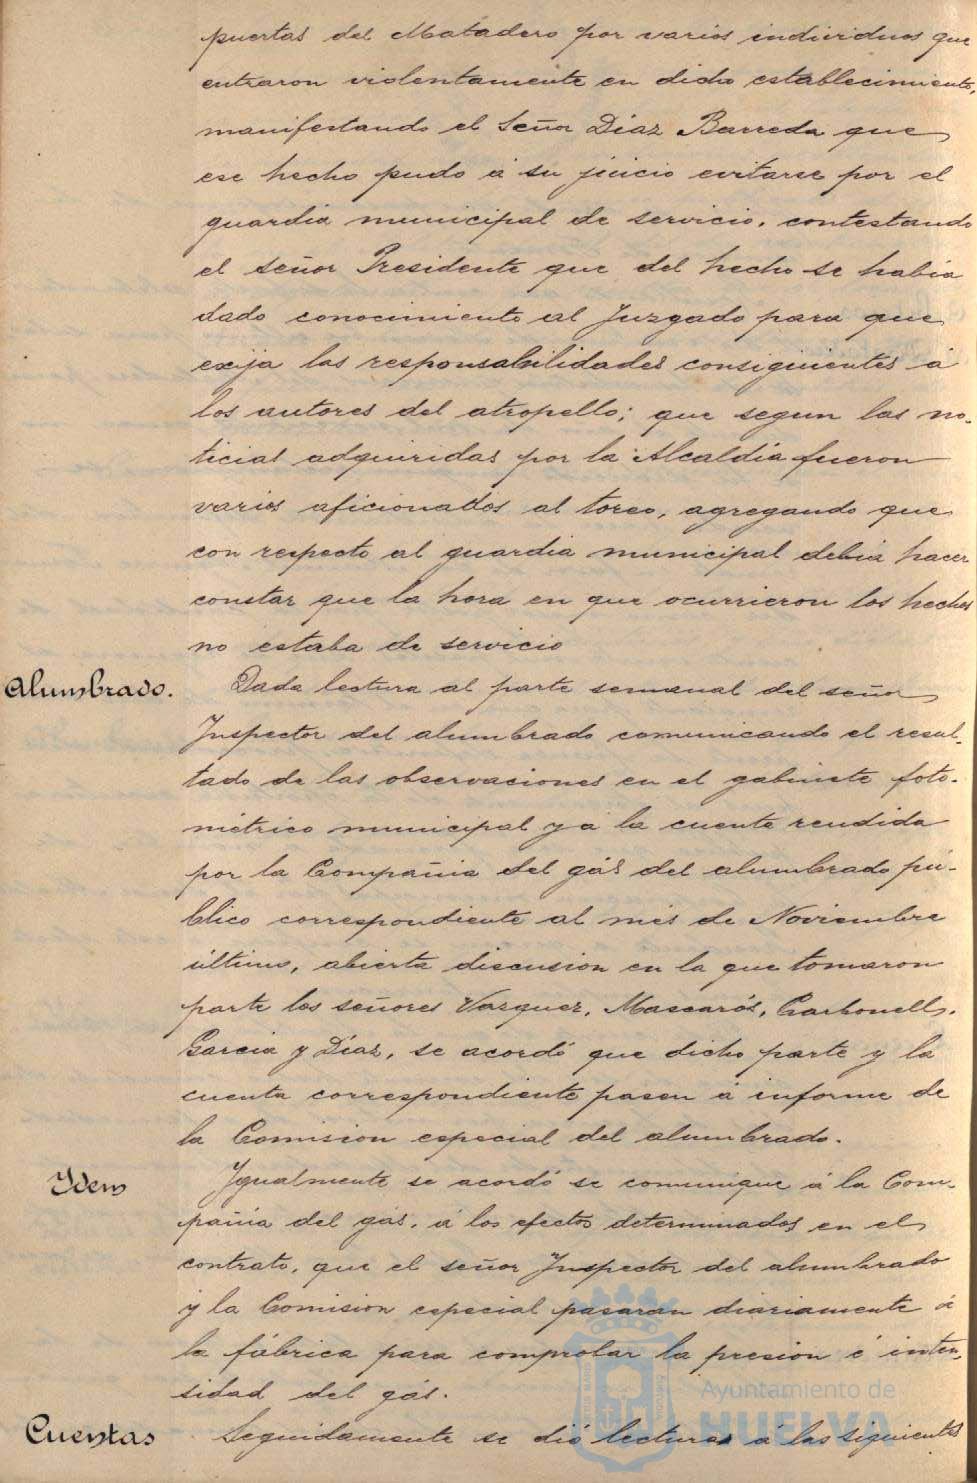 puertas del Matadero por varios individuos que
entraron violentamente en dicho establecimiento,
manifestando el Señor Díaz Barreda que
ese hecho pudo á su juicio evitarse por el
guardia municipal de servicio, contestando
el señor Presidente que del hecho se había
dado conocimiento al Juzgado para que
exija las responsabilidades consiguientes á
los autores del atropello; que segun las no-
ticias adquiridas por la Alcaldía fueron
varios aficionados al toreo, agregando que
con respecto al guardia municipal debia hacer
constar que la hora en que ocurrieron los hechos
no estaba de servicio
Alumbrado. Dada lectura al parte semanal del señor
Inspector del alumbrado comunicando el resul-
tado de las observaciones en el gabinete foto-
métrico municipal y á la cuenta rendida
por la Compañia del gás del alumbrado pú-
blico correspondiente al més de Noviembre
último, abierta discusion en la que tomaron
parte los señores Vazquez, Mascarós, Carbonell,
Garcia y Díaz, se acordó que dicho parte y la
cuenta correspondiente pasen á informe de
la Comision especial del alumbrado.
Ydem Igualmente se acordó se comunique á la Com-
pañia del gás, á los efectos determinados en el
contrato, que el señor Inspector del alumbrado
y la Comision especial pasaran diariamente á
la fábrica para comprobar la presion é inten-
sidad del gás.
Cuentas Seguidamente se dió lectura á las siguientes
Ayuntamiento de
HUELVA